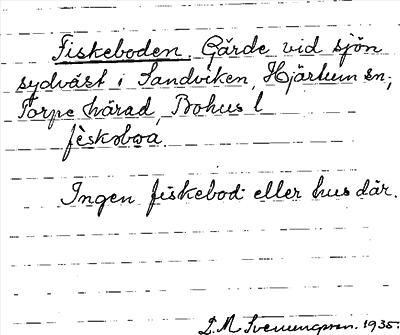 Fiskeboden. Gärde vid sjön
sydväst i Sandviken, Hjärtum sn;
Torpe härad, Bohus l
feskəboa
Ingen fiskebod eller hus där.
D. M. Svenungsson. 1935.